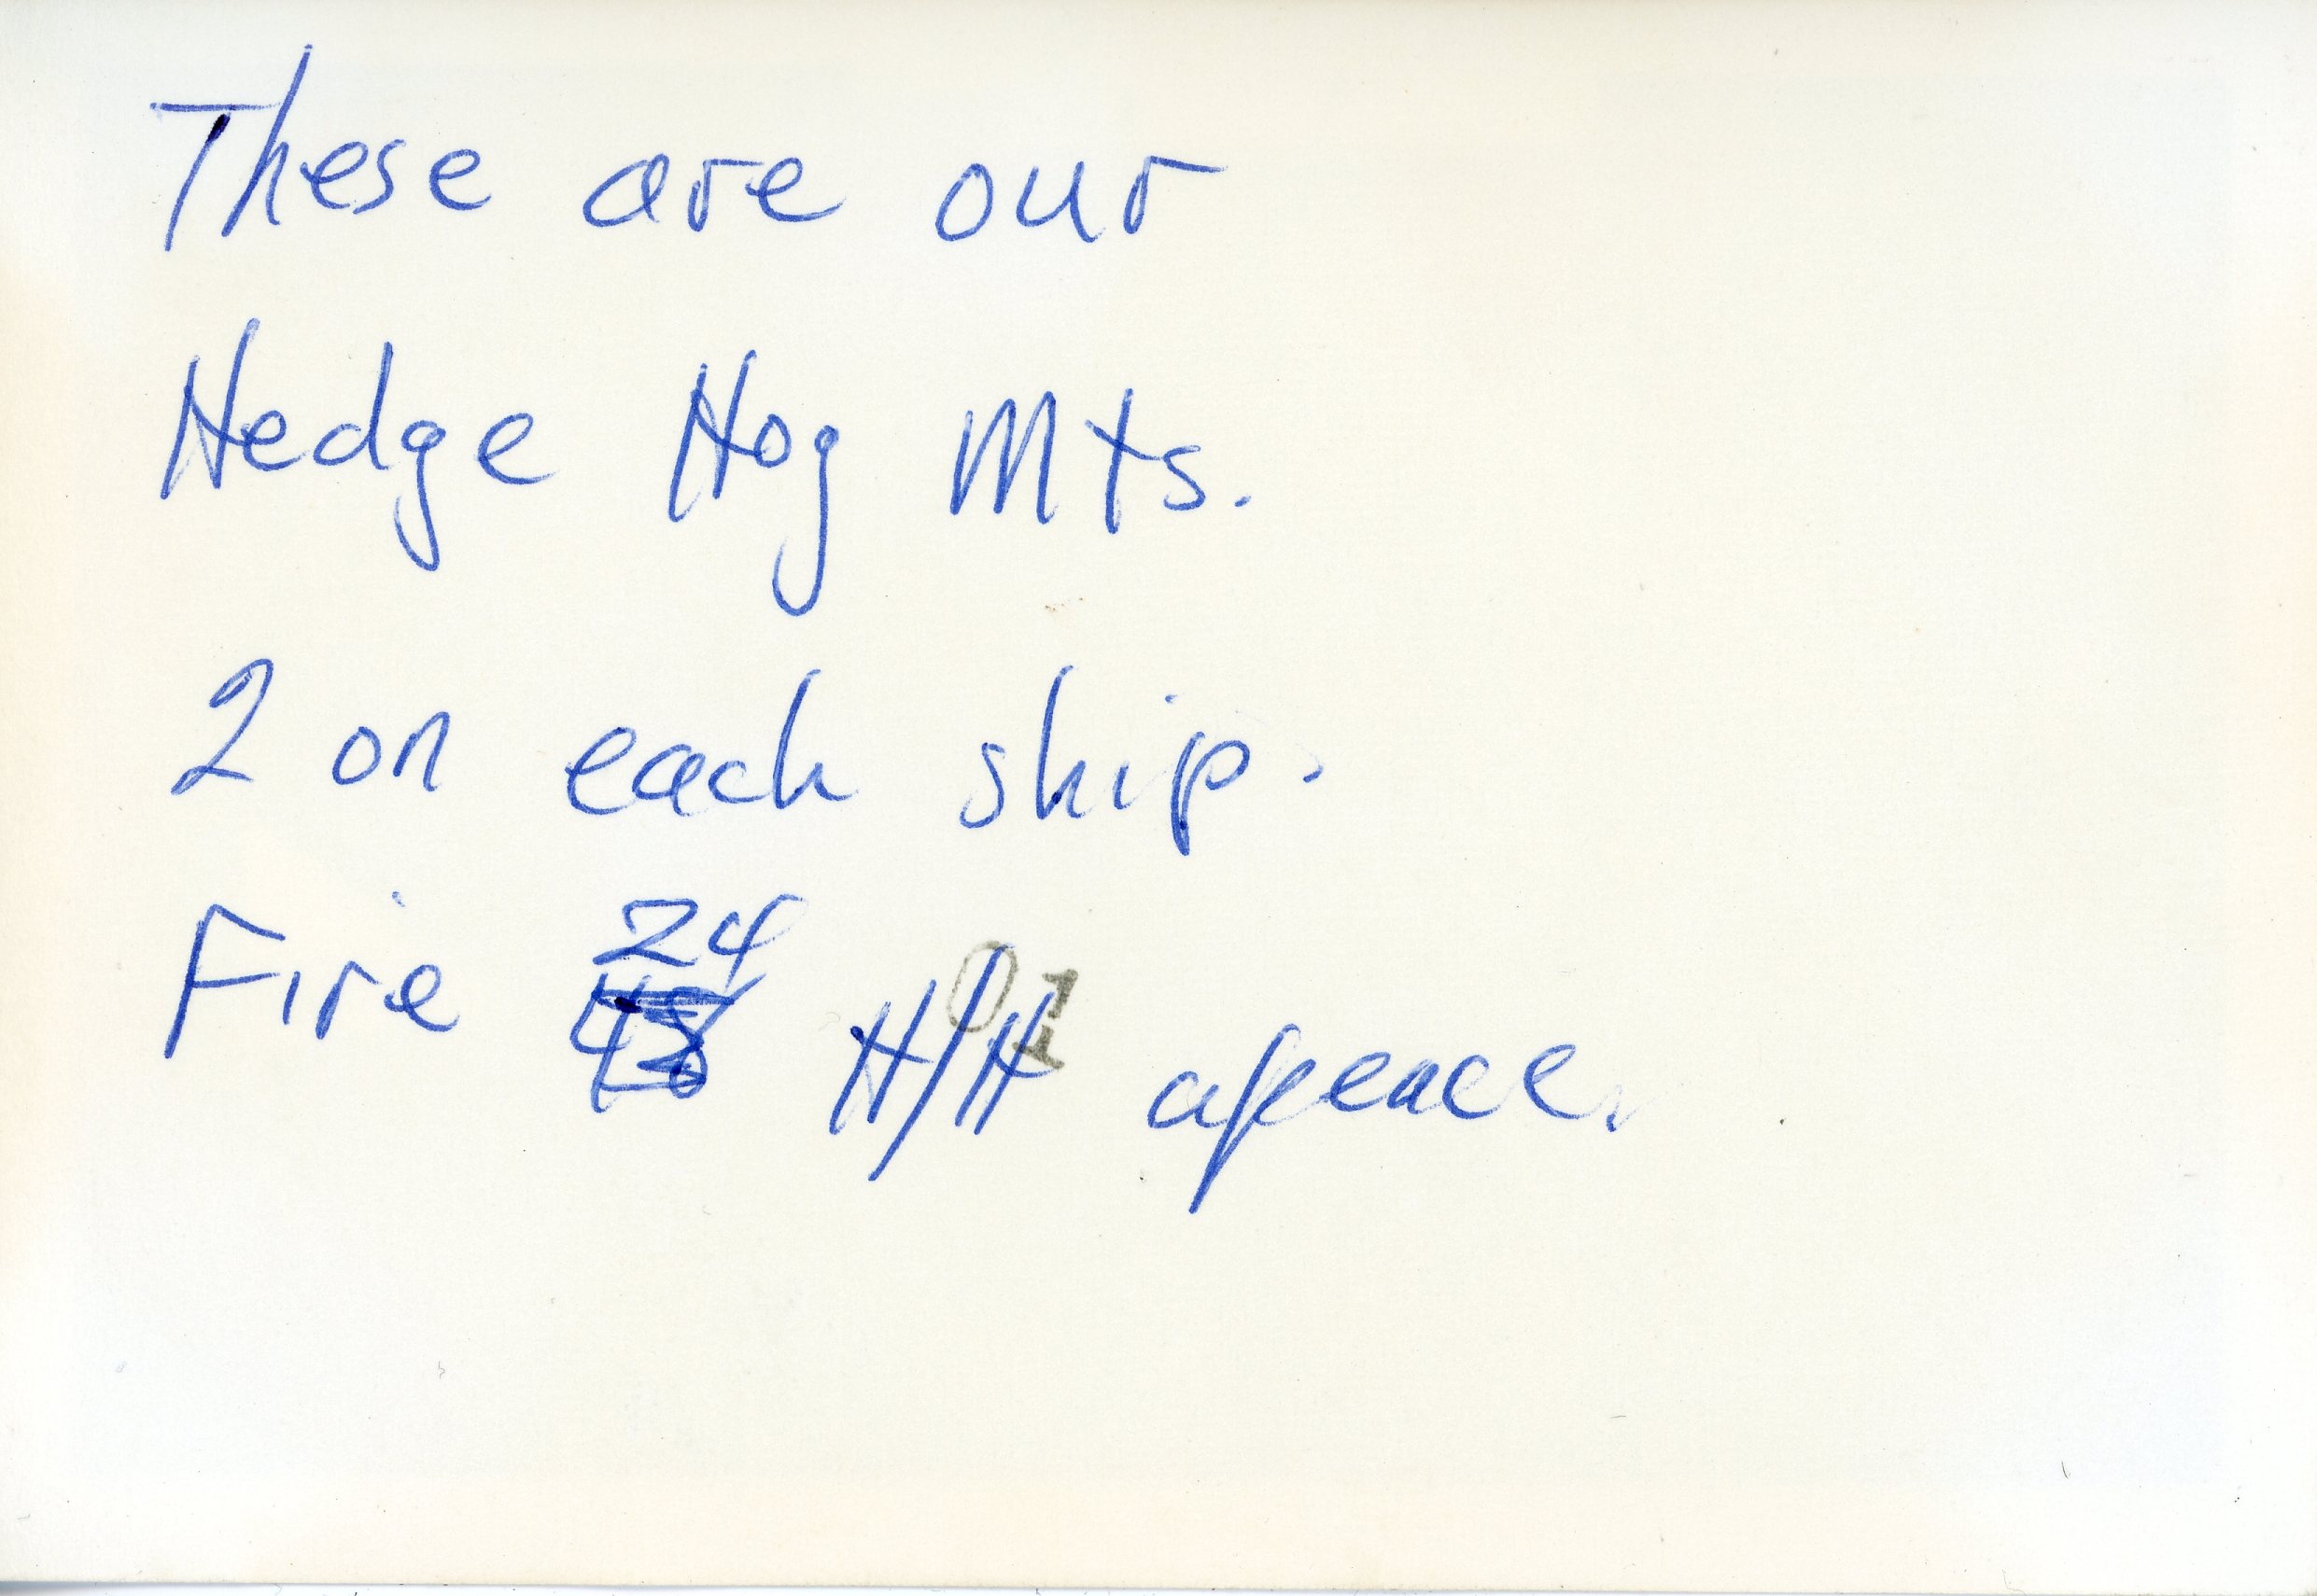 These are our
Hedge Hog Mts.
2 on each ship.
Fire 24 H/H apeace.
01